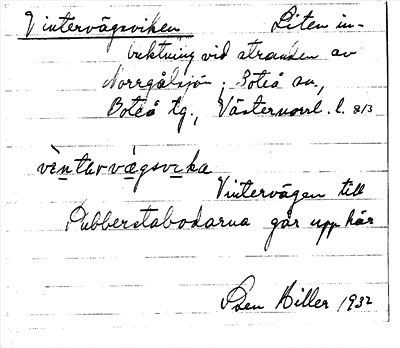 Vintervägsviken Liten in-
buktning vid stranden av
Norrgålsjön, Boteå sn.,
Boteå tg., Västernorrl. l. 813
vèntarvä̀gsvika
Vintervägen till
Rubberstabodarna går upp här
Sven Hiller 1932